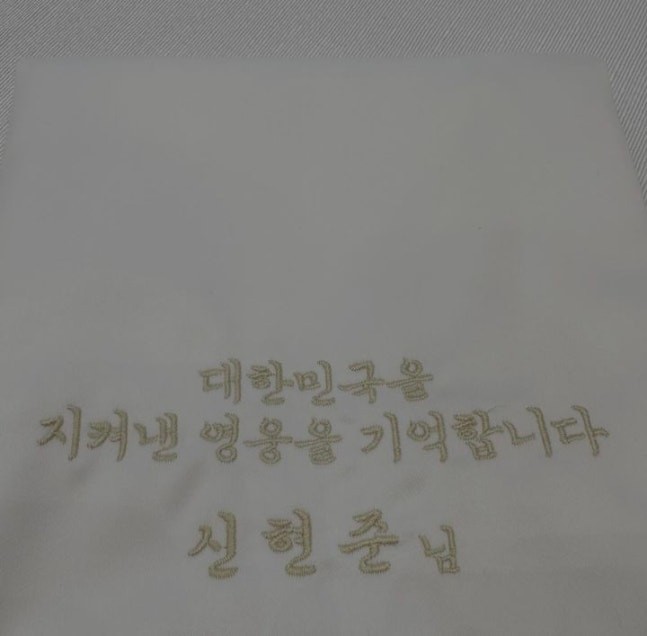 대한민국을
지켜낸 영웅을 기억합니다
신현준 님